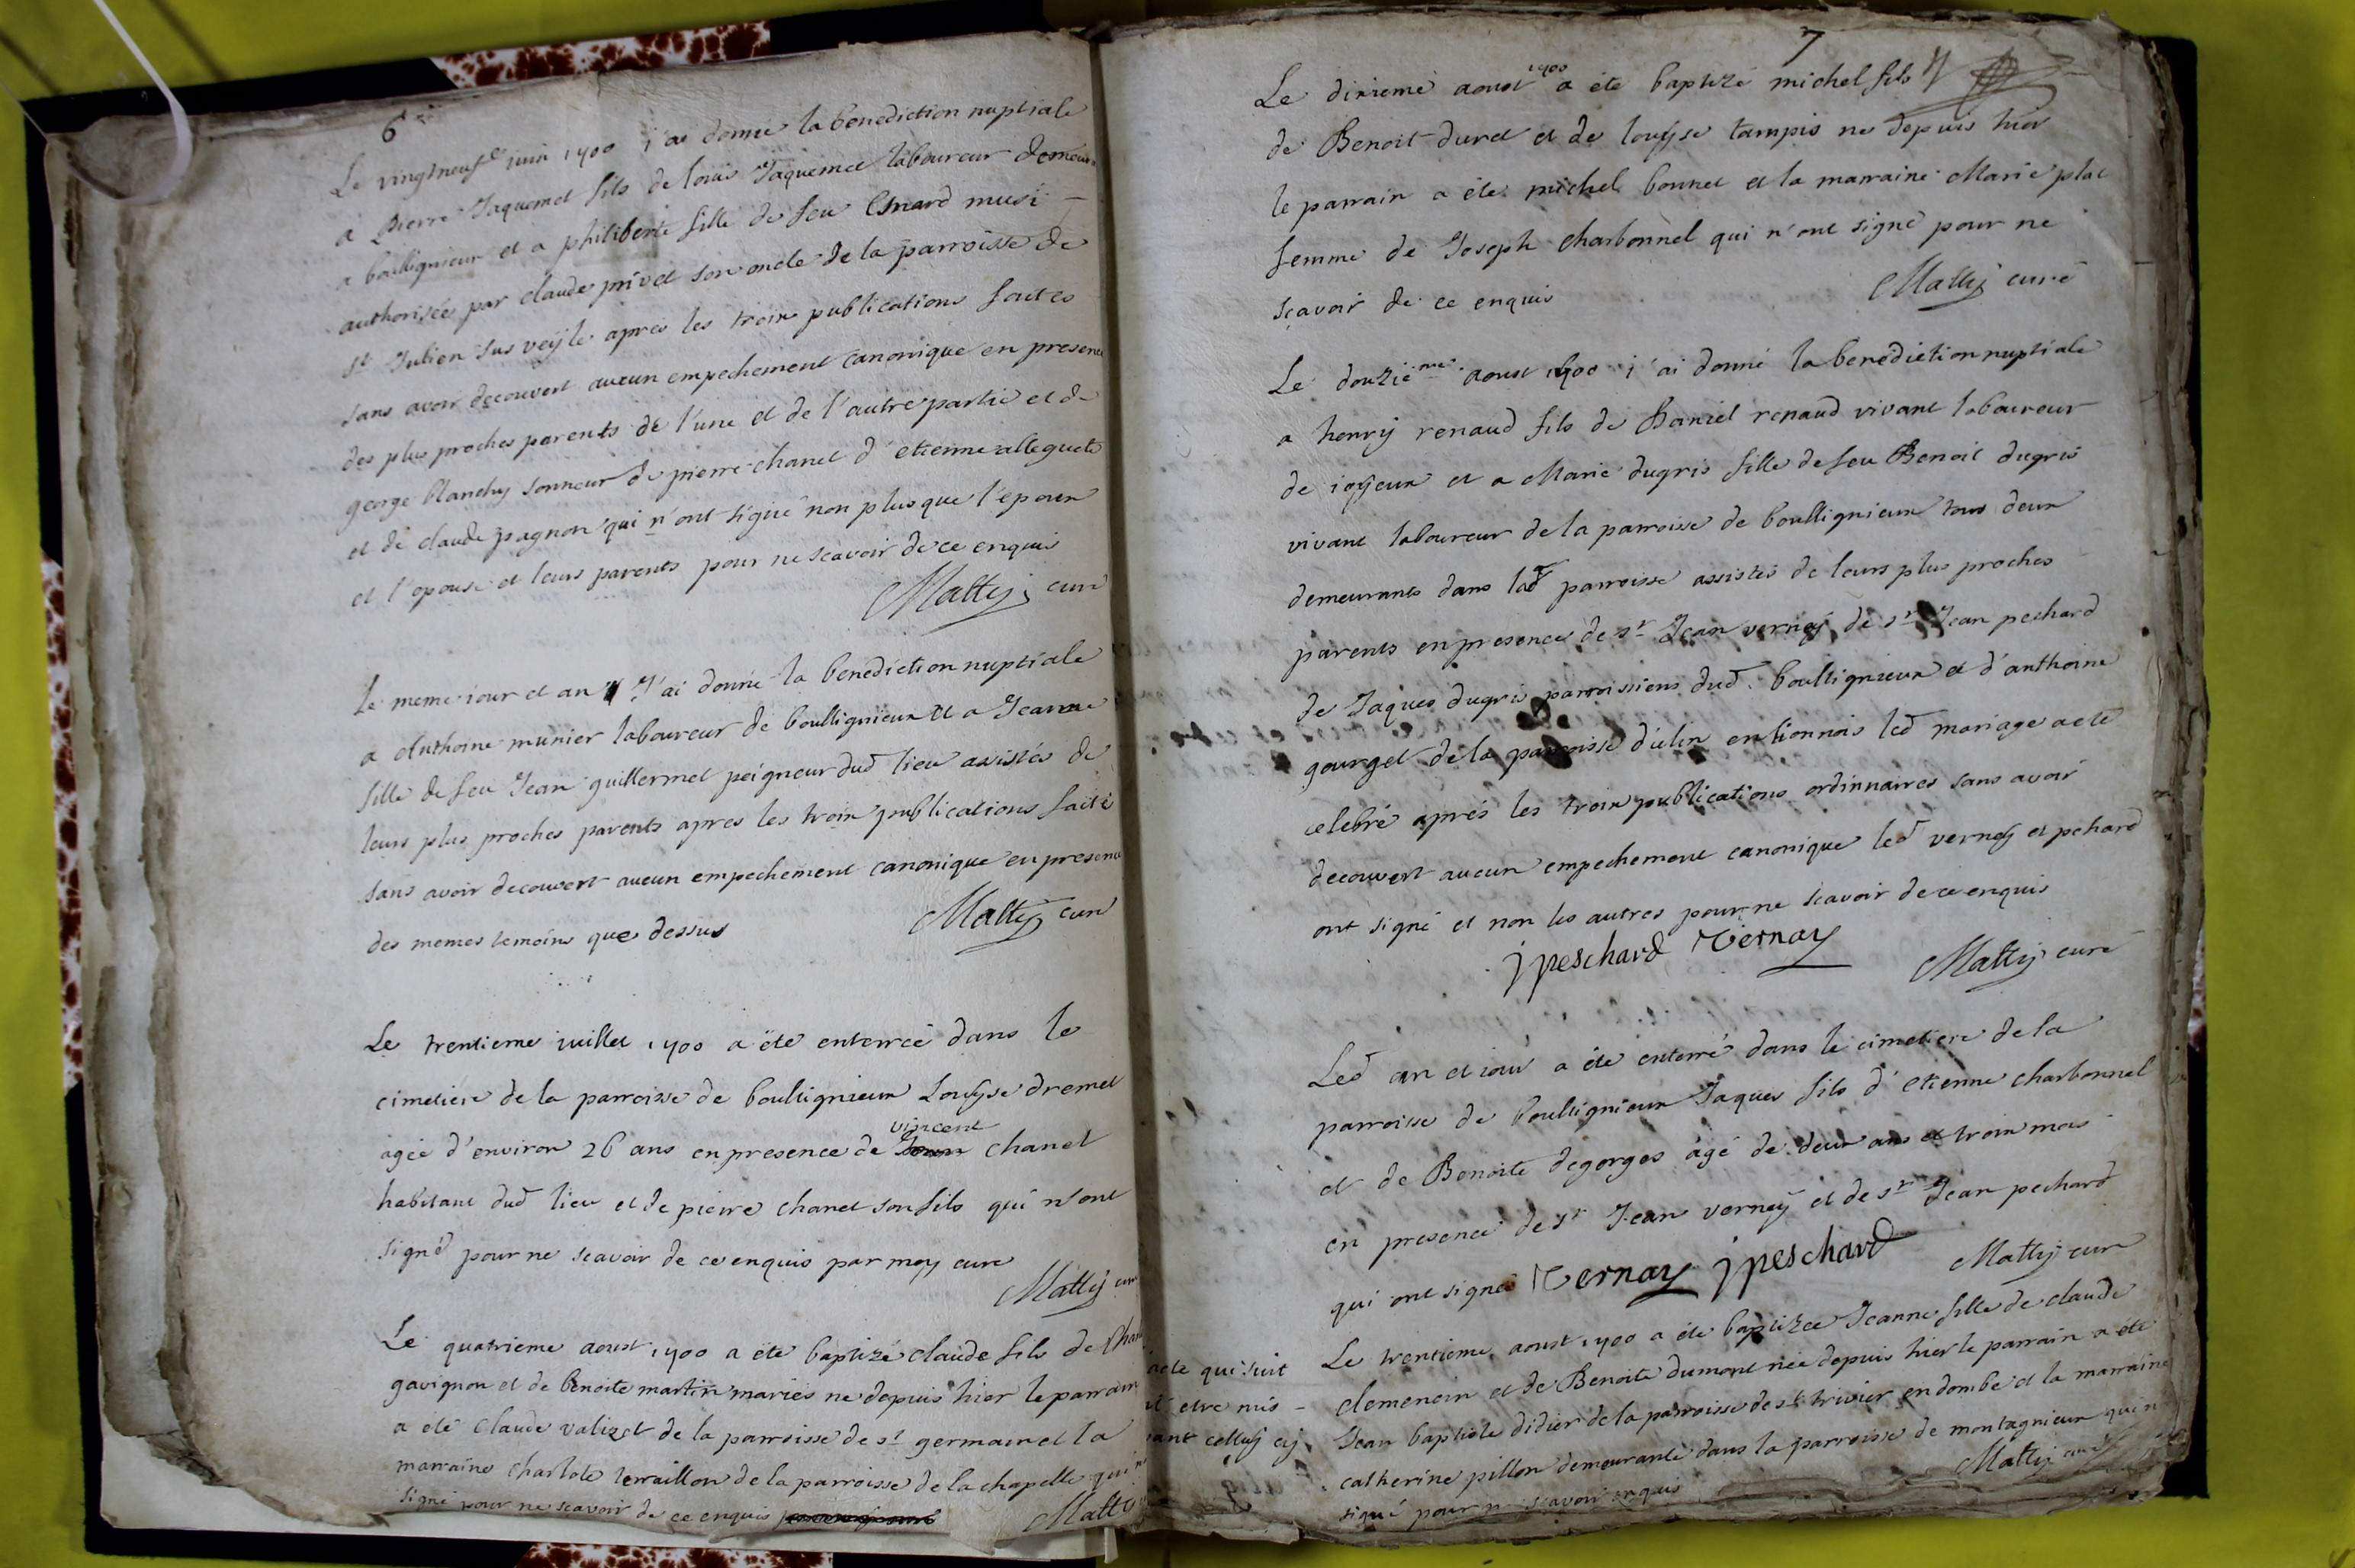 6
Le vingtneuf juin 1700 j'ai donné la benediction nuptiale
a Pierre Jaquemet fils de louis Jaquemet laboureur demeur
a boullignieux et a philiberte fille de feu Esnard musi
authorisée par claude privet son oncle de la parroisse de
st Julien sus veÿle apres les troix publications faites
sans avoir decouvert aucun empechement canonique en presence
des plus proches parents de l'une et de l'autre partie et de
george blanchy sonneur de pierre chanel d'etienne alleguete
et de claude pagnon qui n'ont signé non plus que l'epoux
et l'epouse et leurs parents pour ne scavoir de ce enquis
Mattÿ curé
le meme iour et an J'ai donné la benediction nuptiale
a Anthoine munier laboureur de boullignieux et a Jeanne
fille de feu Jean guillermet peigneur dud lieu assistés de
leurs plus proches parents apres les troix publications faite
sans avoir decouvert aucun empechement canonique en presence
des memes temoins que dessus Mattÿ curé
Le trentieme iuillet 1700 a été enterrée dans le
cimetiére de la parroisse de boullignieux Louÿse dremet
agée d'environ 26 ans en presence de vincent chanel
habitant dud lieu et de pierre chanel son fils qui n'ont
signé pour ne scavoir de ce enquis par moy curé
Mattÿ curé
Le quatrieme aoust 1700 a été baptizé claude fils de Char
gavignon et de benoite martin mariés ne depuis hier le parrain
a eté claude valizet de la parroisse de st germain et la
marraine charlote terraillon de la parroisse de la chapelle qui n
signé pour ne scavoir de ce enquis
Mattÿ
acte qui suit
etre mis
ant celluy cy
7
Le dixieme aoust 1700 a été baptizé michel fils
de Benoit duret et de louÿse tampis ne depuis hier
le parrain a été michel bonnet et la marraine Marie plat
femme de Joseph charbonnel qui n'ont signé pour ne
scavoir de ce enquis Mattÿ curé
Le douzieme aoust 1700 j'ai donné la benediction nuptiale
a henrÿ renaud fils de Daniel renaud vivant laboureur
de joÿeux et a Marie dugris fille de feu Benoit dugris
vivant laboureur de la parroisse de boullignieux tous deux
demeurants dans lad parroisse assistés de leurs plus proches
parents en presence de sr Jean verneÿ de sr Jean peshard
de Jaques dugris parroissiens dud boullignieux et d'anthoine
gourget de la parroisse d'ulin en lionnois led mariage a eté
celebré aprés les troix publications ordinnaires sans avoir
decouvert aucun empechement canonique led verneÿ et pechard
ont signé et non les autres pour ne scavoir de ce enquis
jpeschard Vernay Mattÿ curé
Led an et iour a été enterré dans le cimetiere de la
parroisse de boullignieux Jaques fils d'etienne charbonnel
et de Benoite degorges agé de deux ans et troix mois
en presence de sr Jean verneÿ et de sr Jean pechard
qui ont signés Vernay jpeschard Mattÿ curé
Le trentieme aoust 1700 a été baptizée Jeanne fille de claude
clemencin et de Benoite dumont née depuis hier le parrain a été
Jean baptiste didier de la parroisse de st trivier en dombe et la marraine
catherine pillon demeurante dans la parroisse de montagnieux qui n
signé pour ne scavoir enquis Mattÿ curé